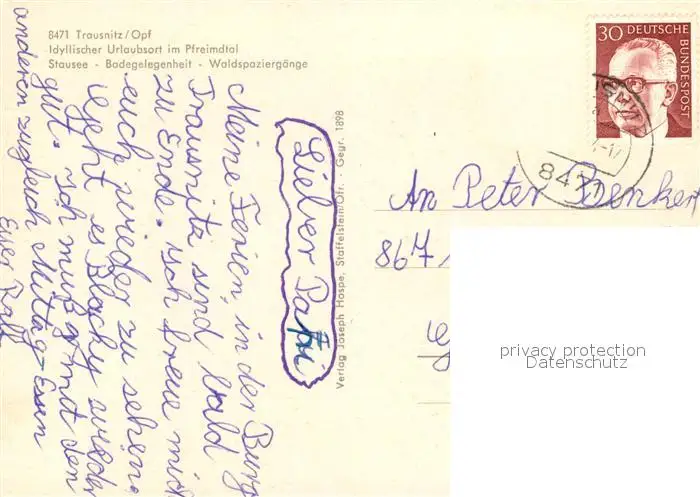 8471 Trausnitz/Opf
Idyllischer Urlaubsort im Pfreimdtal
Stausee - Badegelegenheit - Waldspaziergänge
Lieber Pahi
Meine Ferien, in der Burg
Trausnitz sind bald
zu Ende. Ich freue mich
euch wieder zu sehen.
Geht es Blacky wieder
gut. Ich muß mit den
anderen zugleich Mittag-Essen
Euer Ralf
Verlag Joseph Hospe, Staffelstein/Ofr. · Gegr. 1898
30 DEUTSCHE
BUNDESPOST
8471
An Peter Benker
867
privacy protection
Datenschutz